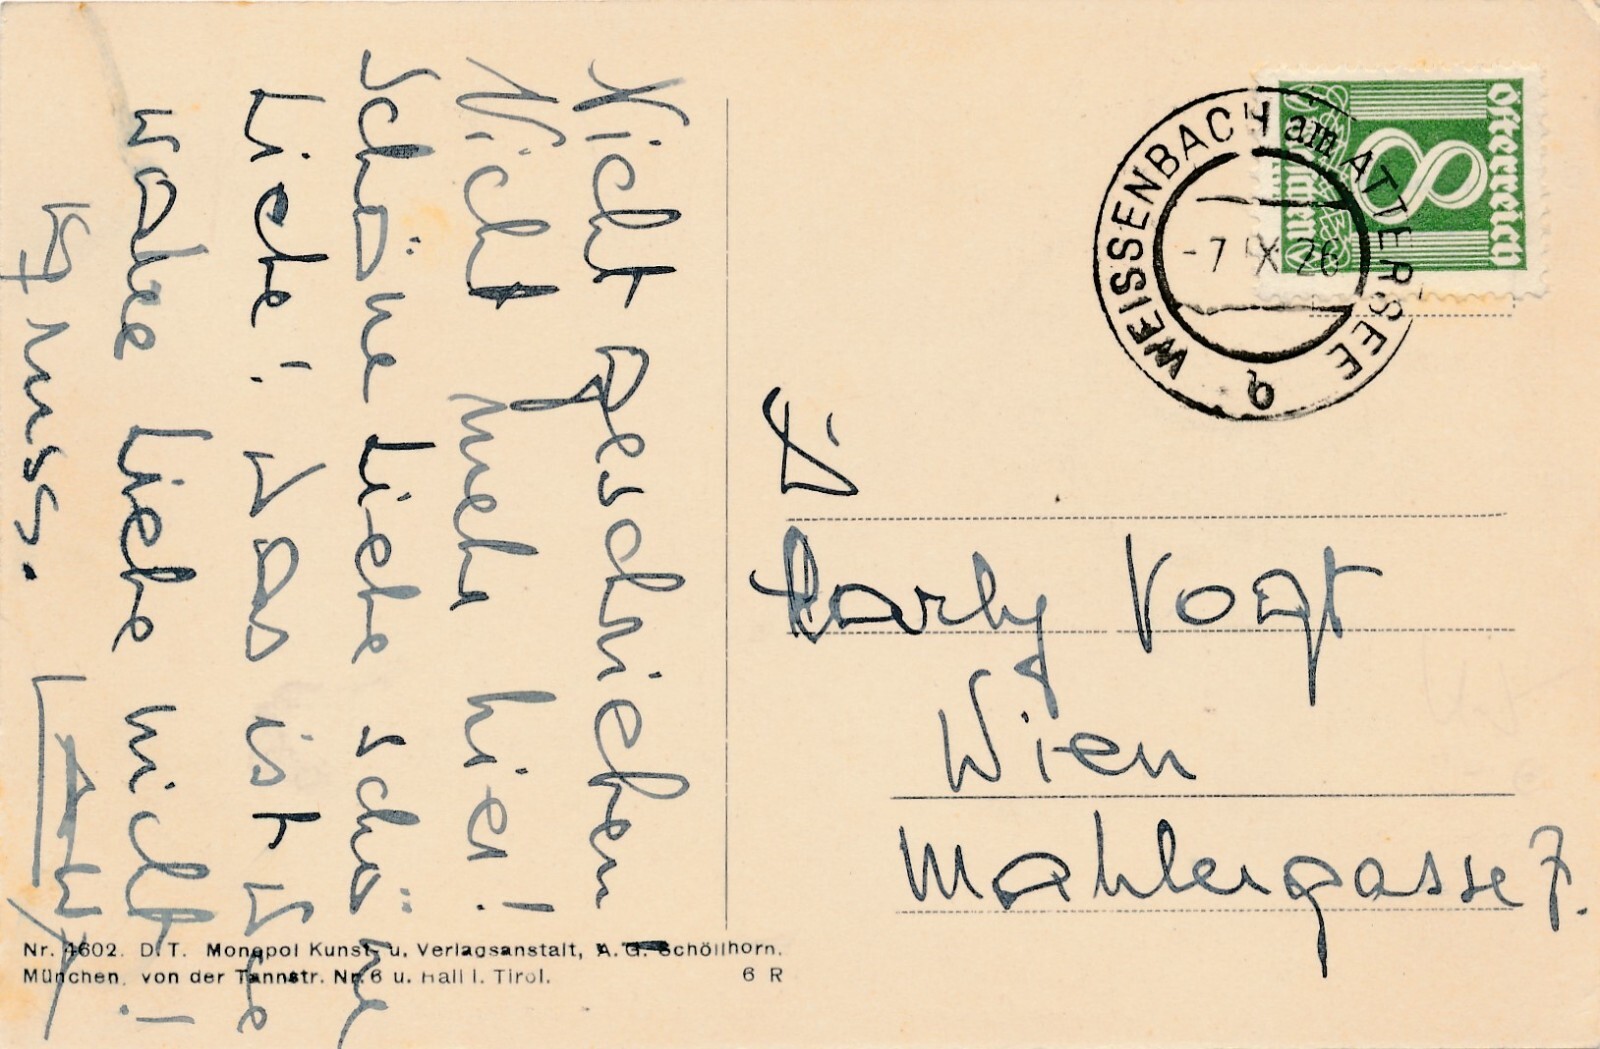 Nicht geschrieben
Nicht mehr hier!
Schöne Liebe schöne
Liebe! Das ist
wahre Liebe nicht!
Kgruss.
Österreich
8
WEISSENBACH am ATTERSEE
-7 IX 26
b
Karly Vogt
Wien
Mahlergasse 7.
Nr. 4602. D.T. Monopol Kunst- u. Verlagsanstalt, A.G. Schöllhorn.
München, von der Tannstr. Nr. 6 u. Hall i. Tirol. 6 R